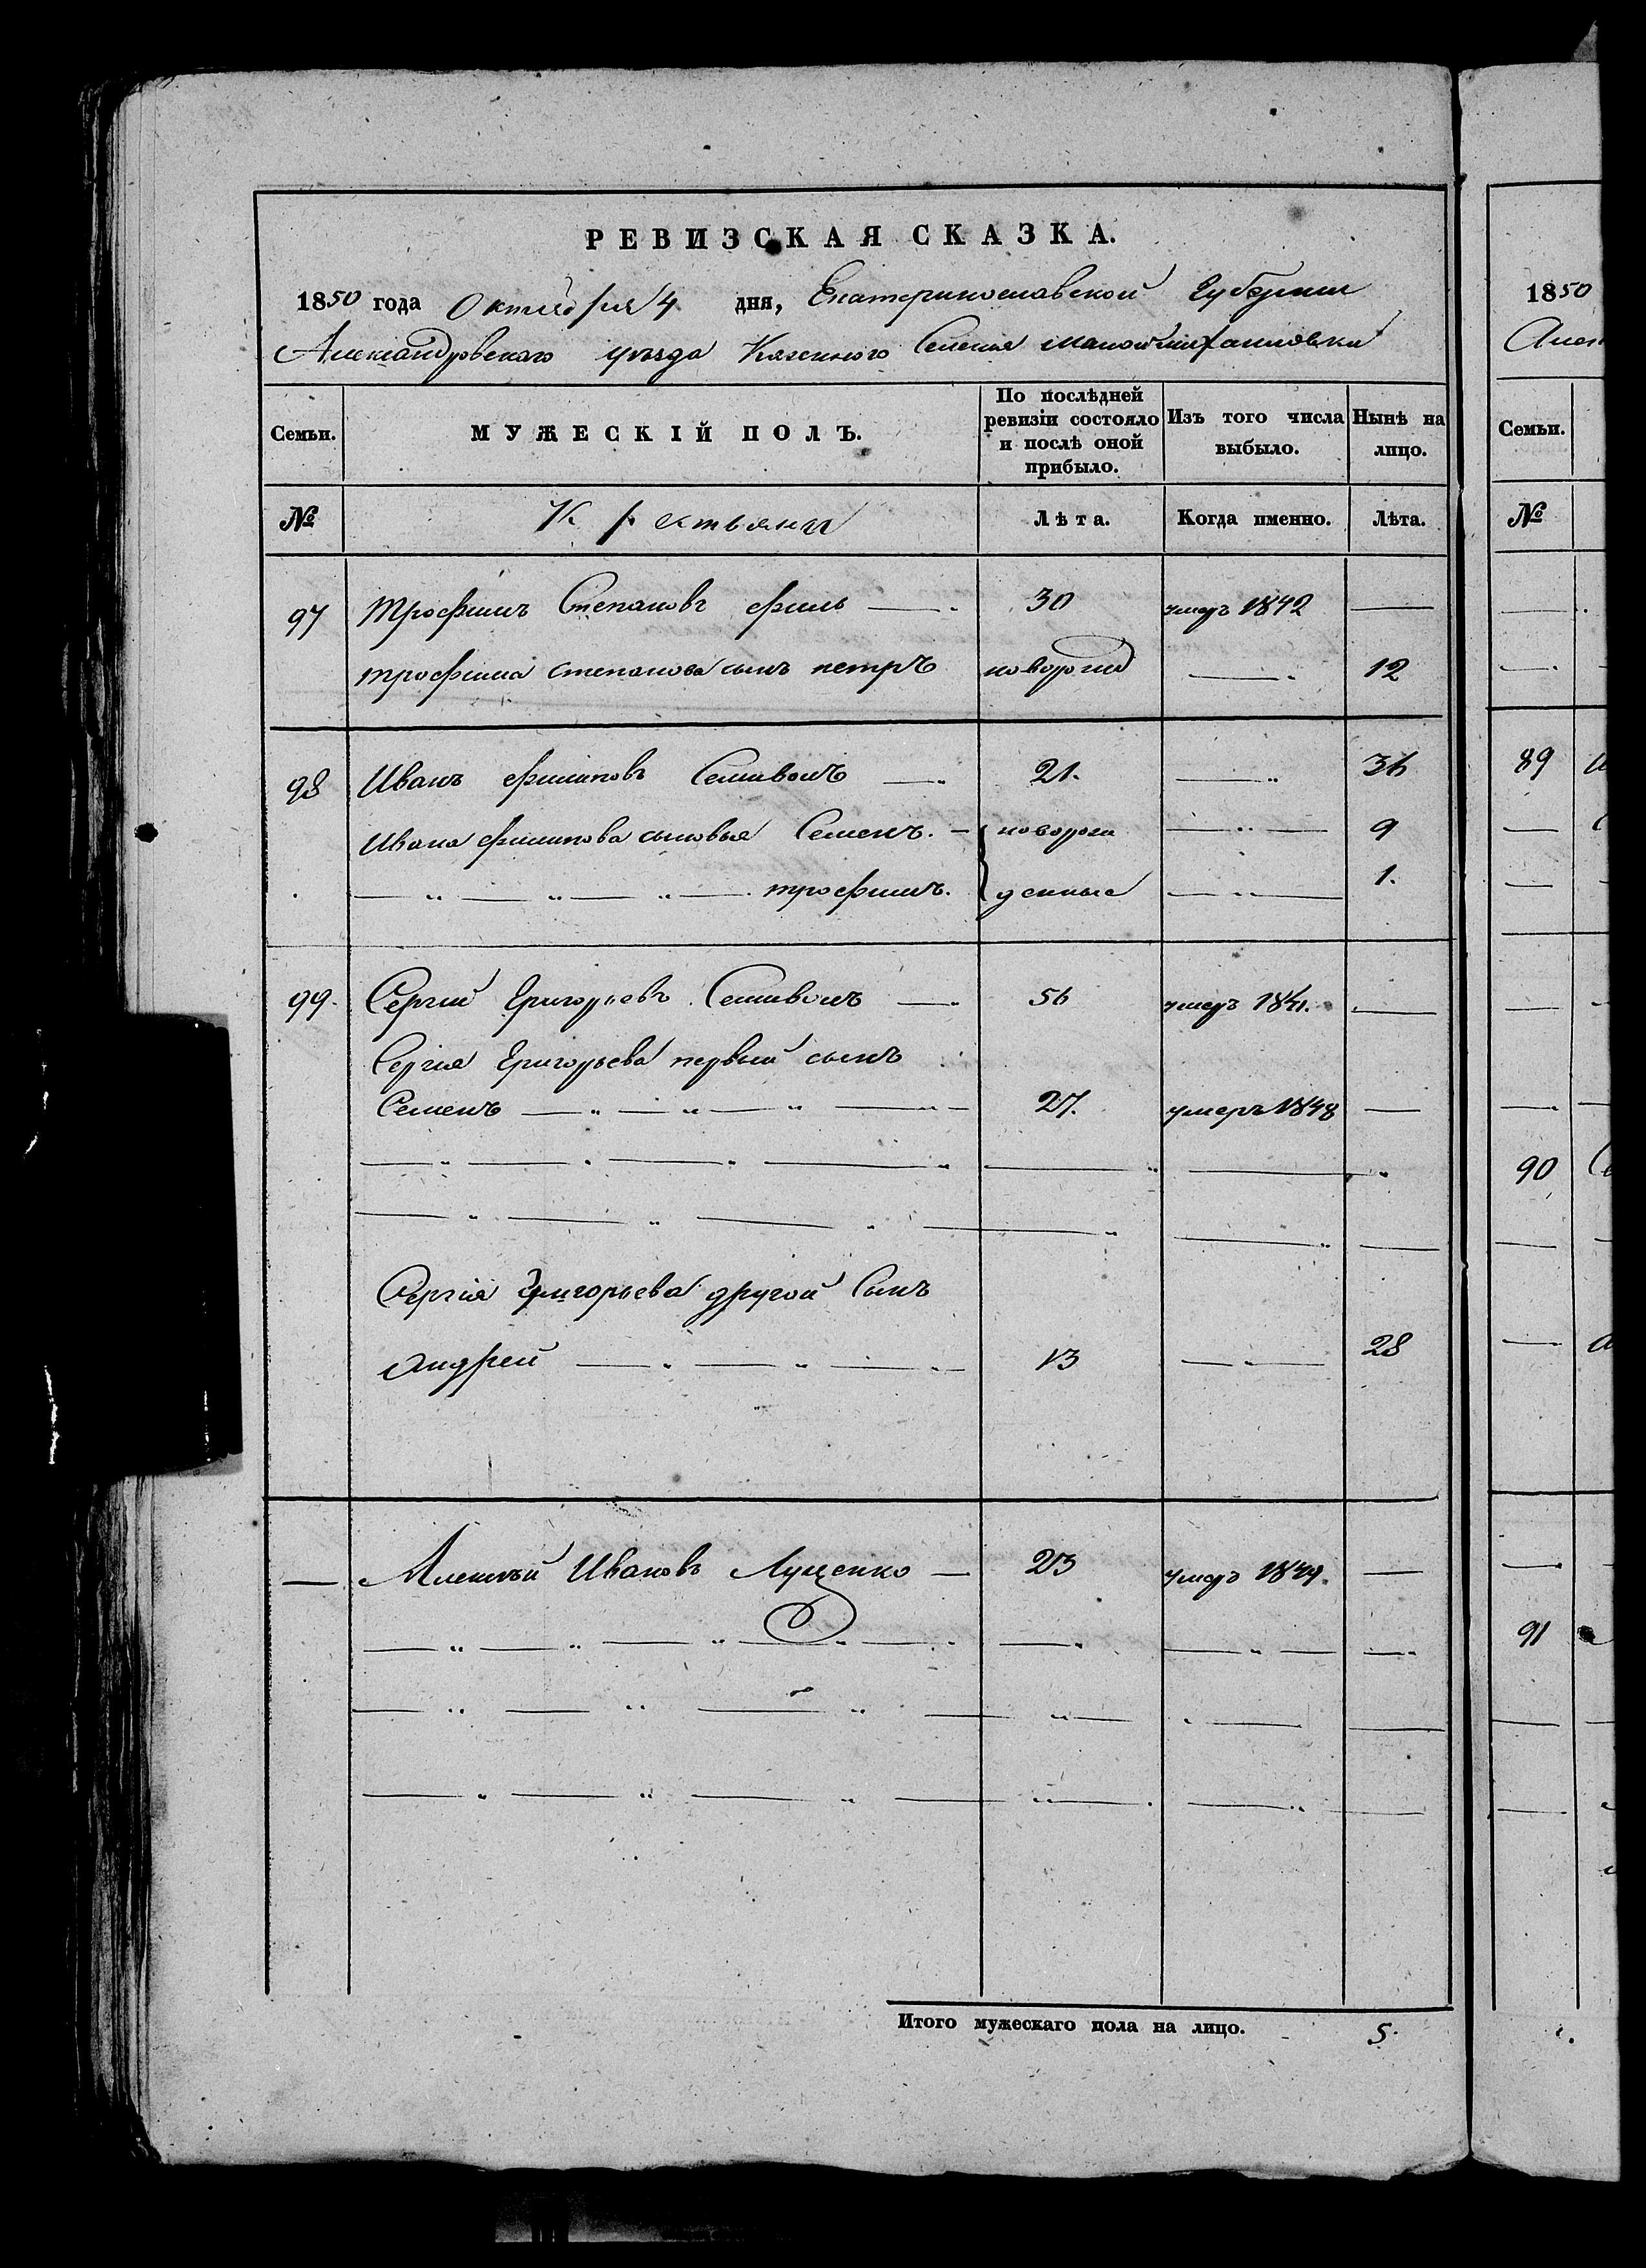 РЕВИЗСКАЯ СКАЗКА.
1850 года Октября 4 дня, Екатеринославской Губернии
Александровскаго уѣзда Казенного Селенія малой михайловки
Семьи. МУЖЕСКІЙ ПОЛЪ. По послѣдней ревизіи состояло и послѣ оной прибыло. Изъ того числа выбыло. Нынѣ на лицо.
№ Крестьяни Лѣта. Когда именно. Лѣта.
97 Трофимъ Степановъ 30 умеръ 1842
трофима степанова сынъ петръ новорожд 12
98 Иванъ филиповъ Семиволъ 21. 36
Ивана филипова сыновья Семенъ. новорож 9
трофимъ. денные 1.
99. Сергій Григорьевъ Семиволъ 56 умеръ 1841.
Сергія Григорьева первый сынъ
Семенъ 27. умеръ 1848
Сергія Григорьева другой Сынъ
Андрей 13 28
Алексѣй Ивановъ Луценко 23 умеръ 1849.
Итого мужескаго пола на лицо. 5.
1850
Семьи.
№
89
90
91